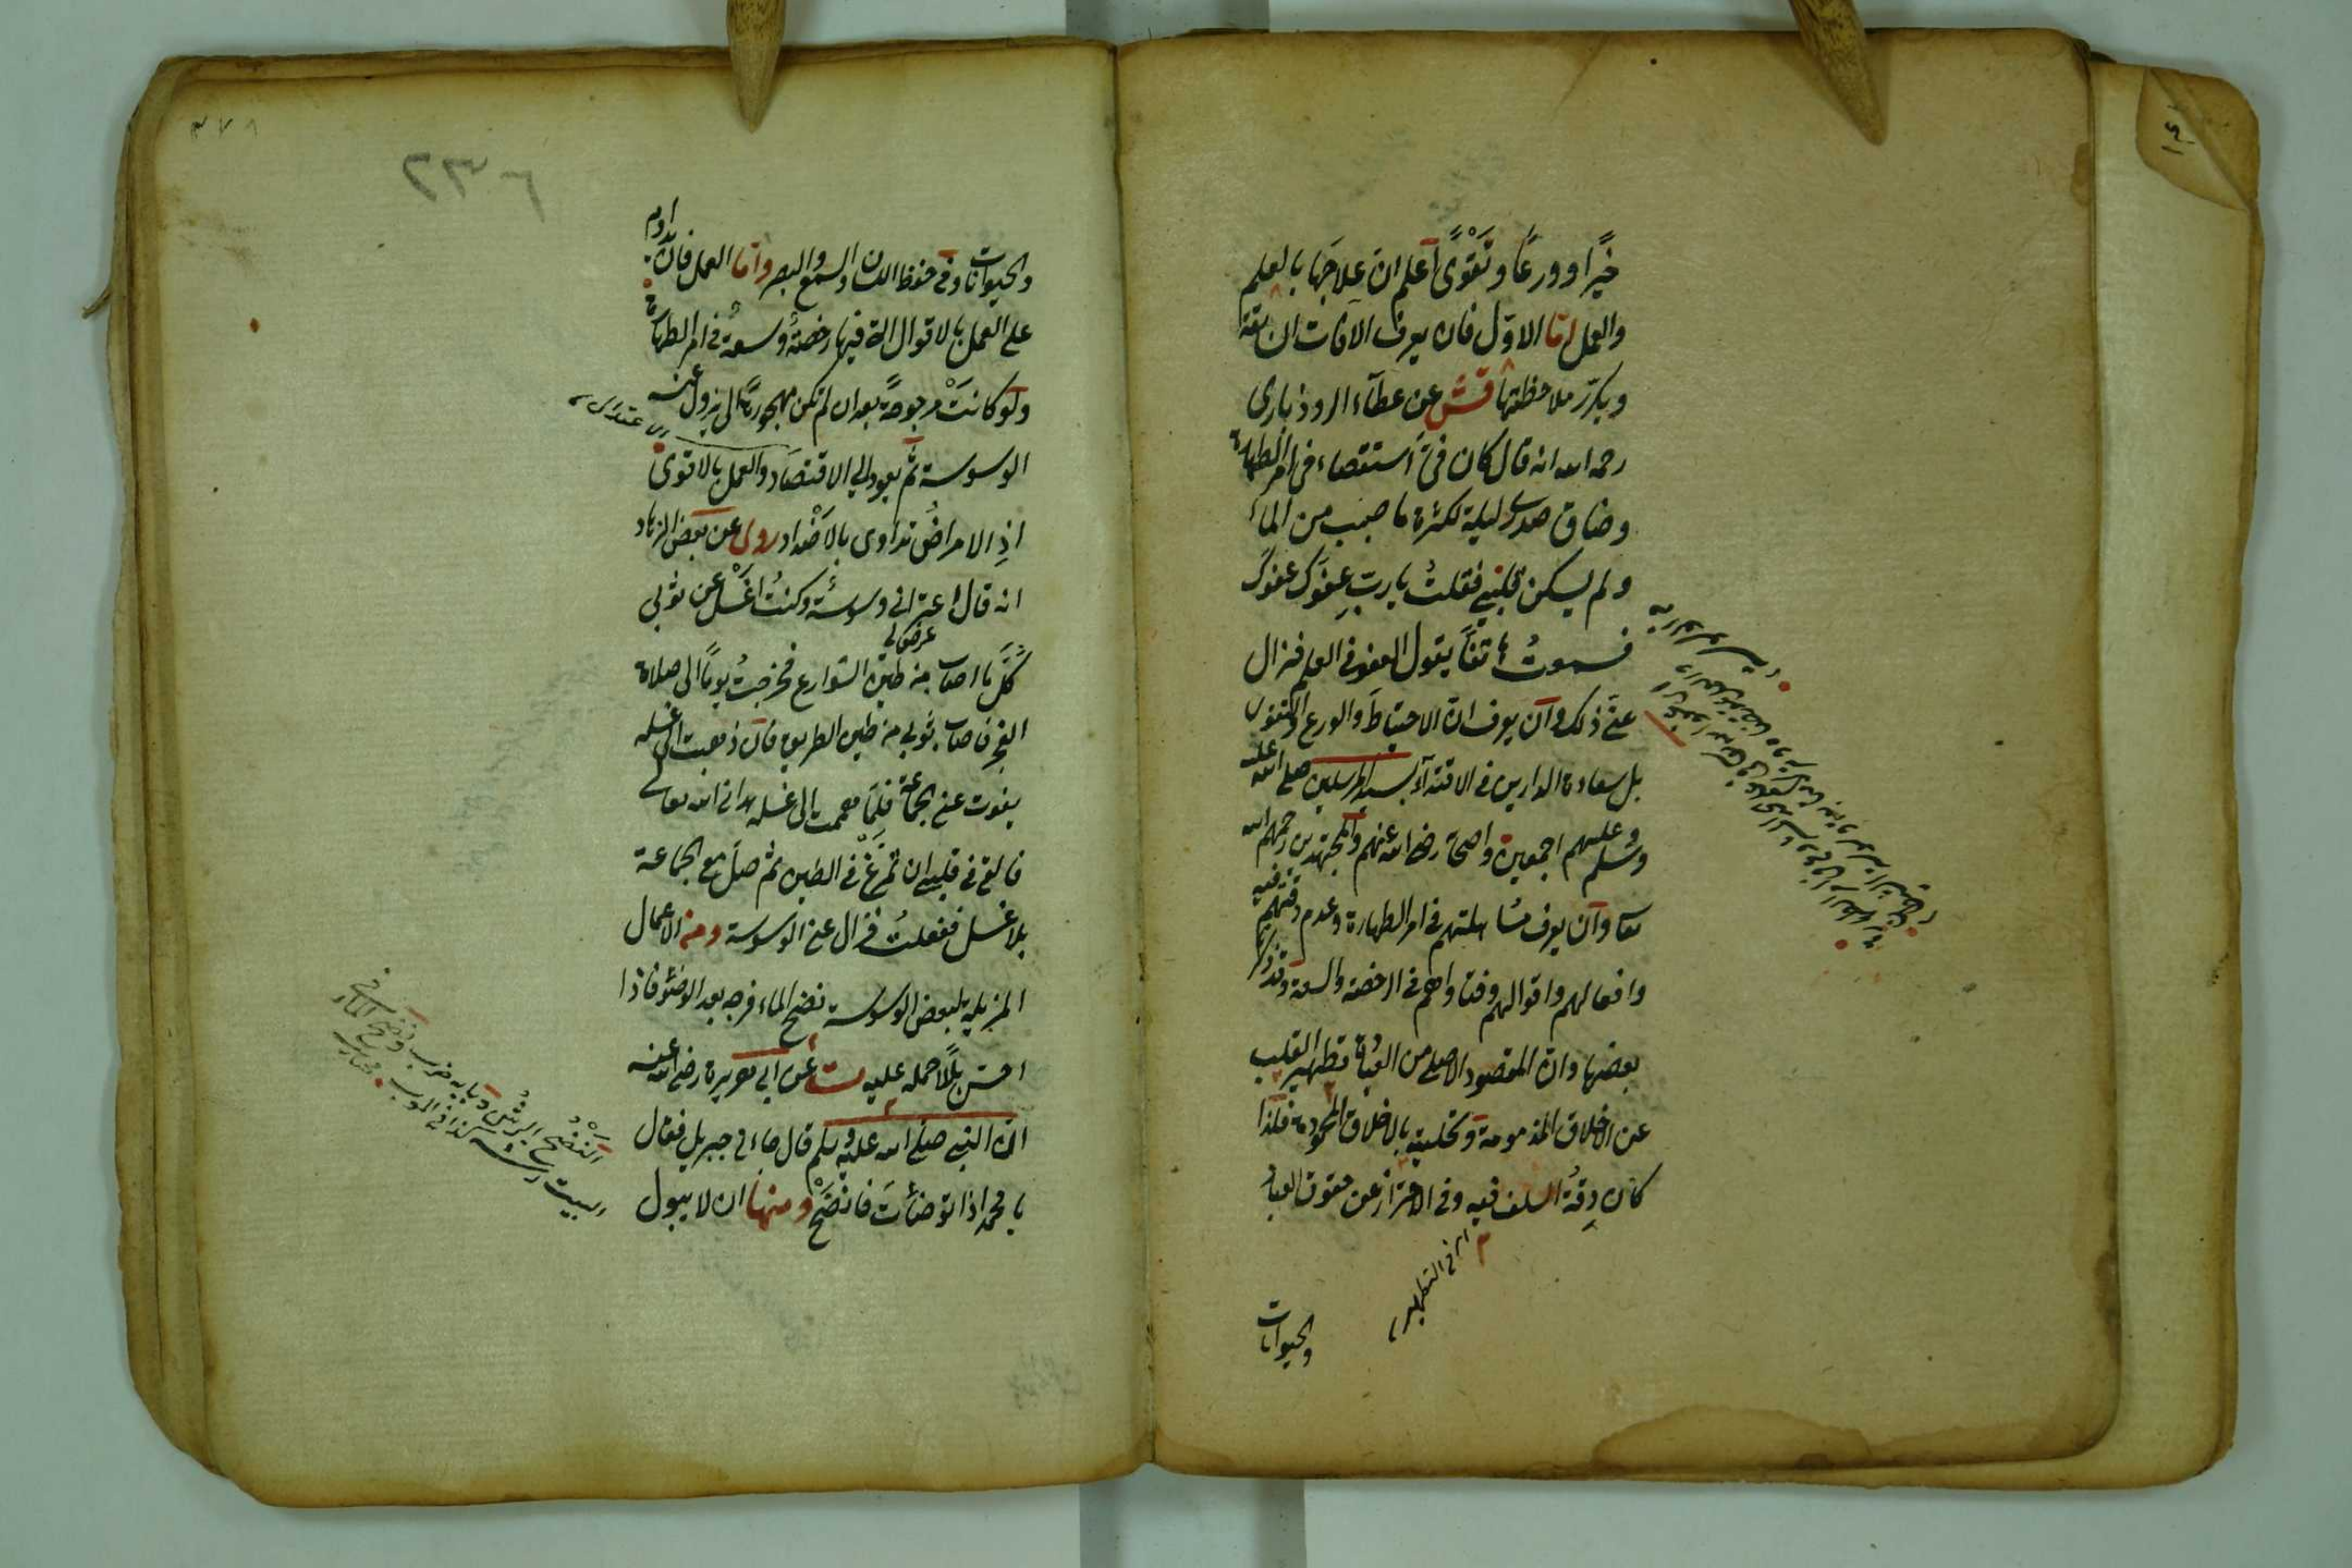 خيرا وورعا وتقوى اعلم ان علاجها بالعلم
والعمل اما الاول فان يعرف الافات السابقة
ويكرر ملاحظتها قش عن عطاء الروذباري
رحمه الله انه قال كان في استقصاء في امر الطهارة
وضاق صدري ليلة لكثرة ما صببت من الماء
ولم يسكن قلبي فقلت يا رب عفوك عفوك
فسمعت هاتفا يقول العفو في العلم فزال
عني ذلك وان يعرف ان الاحتياط والورع والتقوى
بل سعادة الدارين في الاقتداء بسيد المرسلين صلى الله عليه
وسلم وعليهم اجمعين واصحابه رضى الله عنهم والمجتهدين رحمهم الله
تعا وان يعرف مساهلتهم في امر الطهارة وعدم دقتهم فيه
وافعالهم واقوالهم وفتاواهم في الرخصة والسعة وقد ذكرنا
بعضها وان المقصود الاصلي من العبادة تطهير القلب
عن الاخلاق المذمومة وتحليته بالاخلاق المحمودة فلذا
كان دقة السلف فيه وفي الاحتراز عن حقوق العباد
اى في التطهير
والحيوانات
٢٣٦
٣٧٨
والحيوانات وفي حفظ اللسان والسمع والبصر واما العمل فان يداوم
على العمل بالاقوال التي فيها رخصة وسعة في امر الطهارة
ولو كانت مرجوحة بعد ان لم تكن مهجورة الى ان يزول عنه
الوسوسة ثم يعود الى الاقتصاد والعمل بالاقوى
اذ الامراض تداوى بالاضداد روى عن بعض الزهاد
انه قال اعتراني وسوسة وكنت اغسل عن ثوبي
عرض لي
كل ما اصاب من طين الشوارع فخرجت يوما الى صلاة
الفجر فاصاب ثوبي من طين الطريق فان ذهبت الى غسله
يفوت عني الجماعة فلما هممت الى غسله هداني الله تعالى
فالقى في قلبي ان تمرغ في الطين ثم صل مع الجماعة
بلا غسل ففعلت فزال عني الوسوسة ومن الاعمال
المزيلة لبعض الوسوسة نضح الماء فرجه بعد الوضوء فاذا
احس بللا حمله عليه ت عن ابي هريرة رضى الله عنه
ان النبي صلى الله عليه وسلم قال جاءني جبريل فقال
يا محمد اذا توضأت فانضح ومنها ان لا يبول
النضح الرش وبابه ضرب ونضح
البيت رشه كذا في